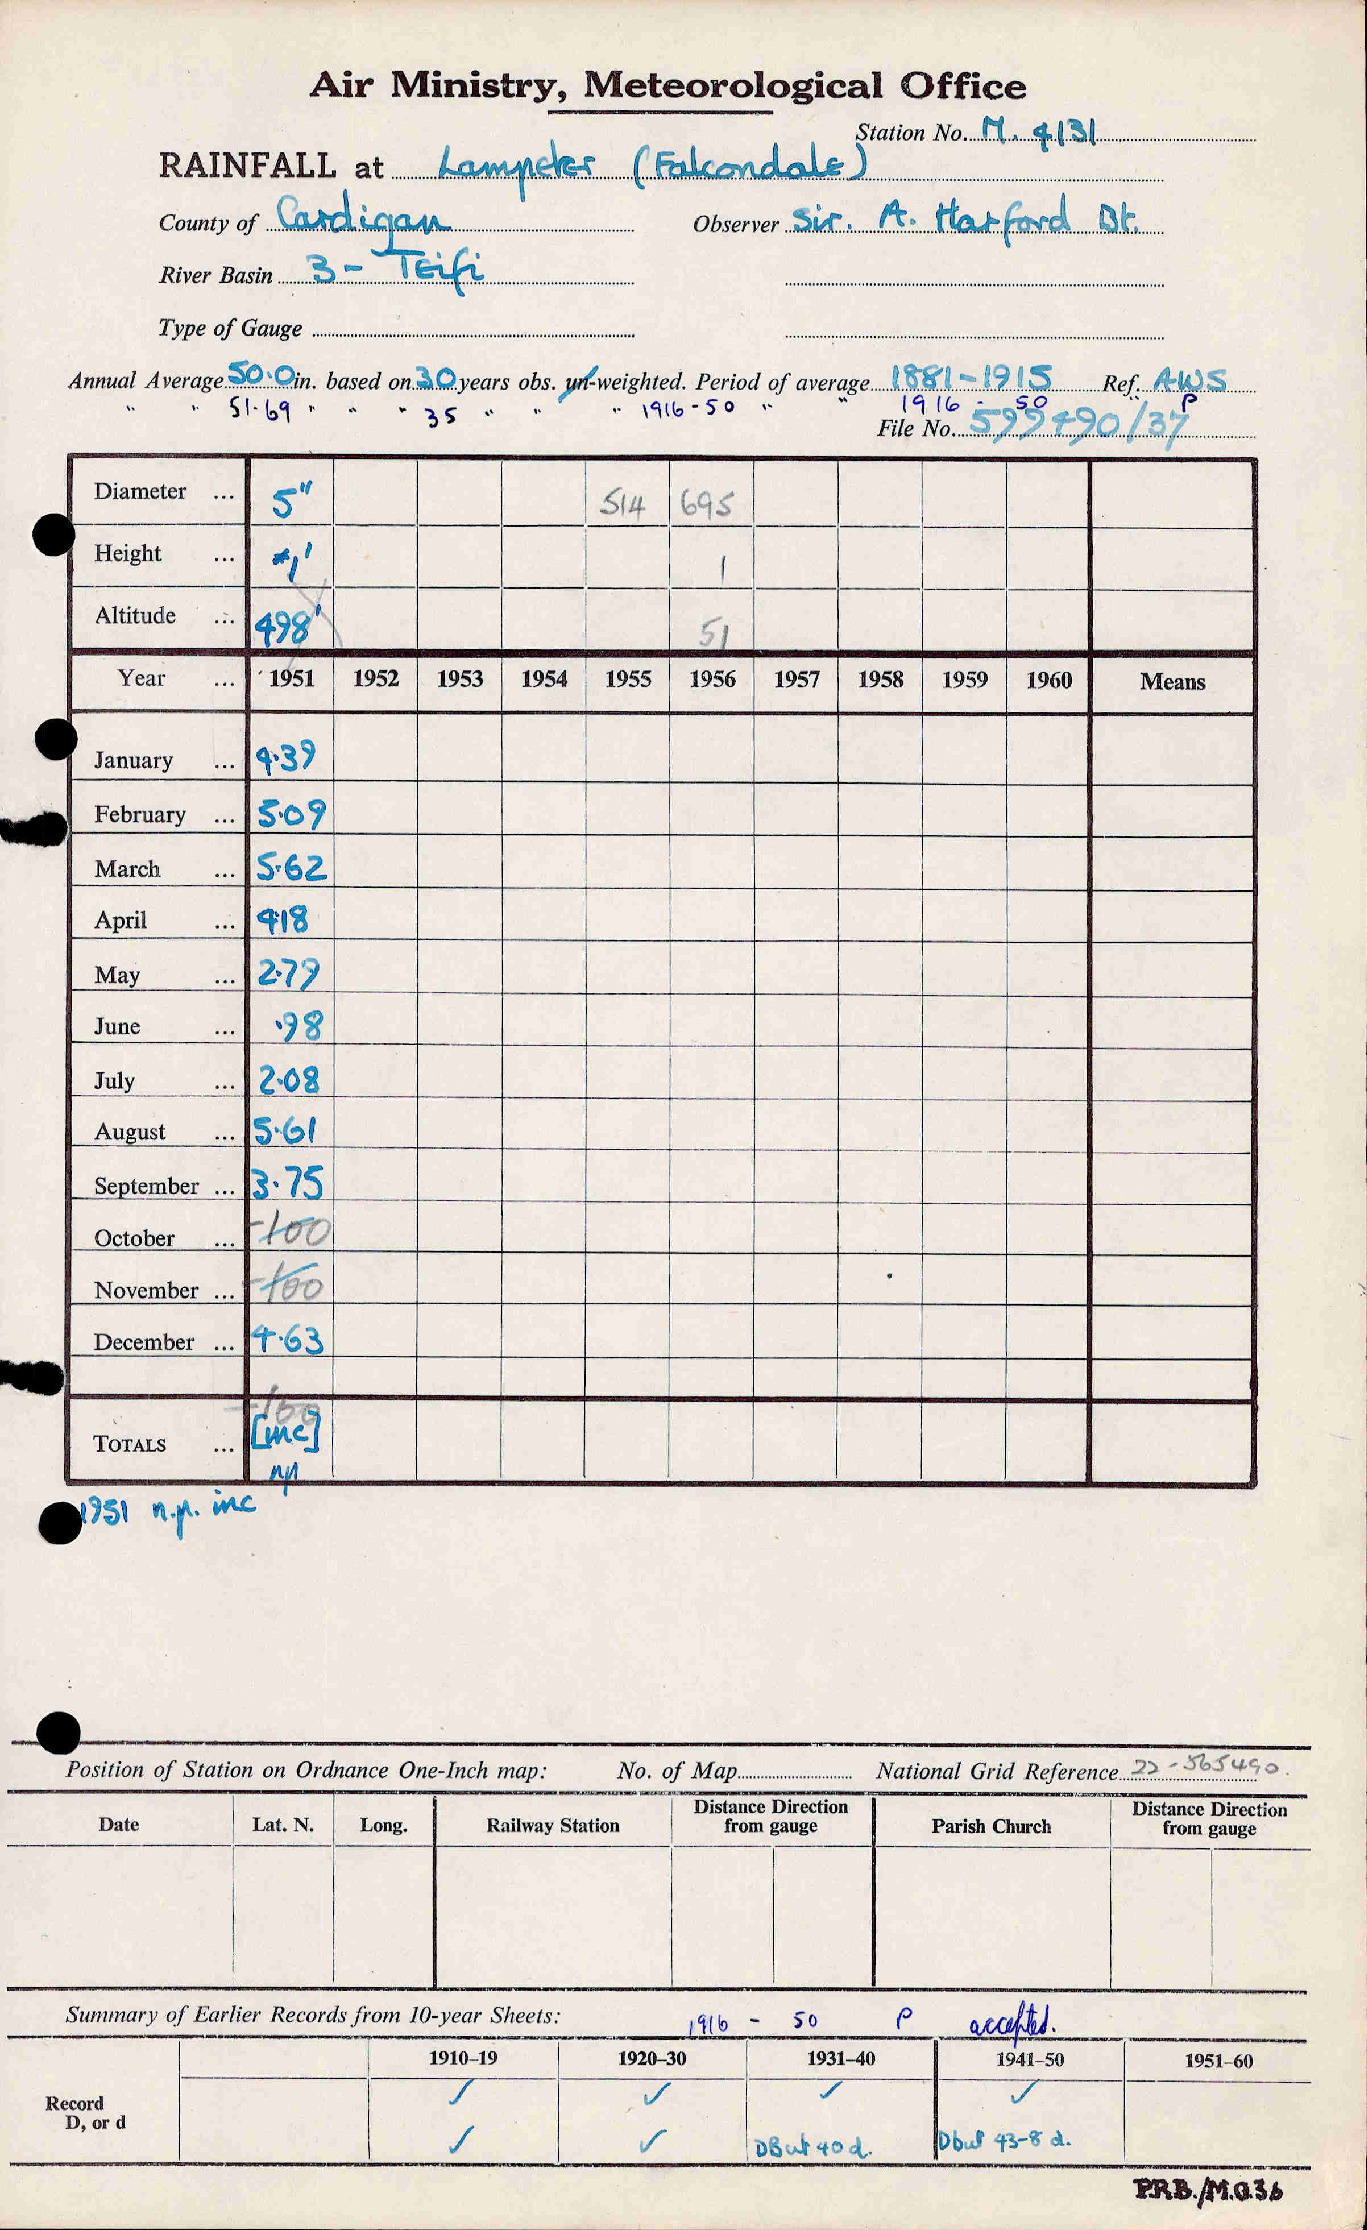 Air Ministry, Meteorological Office
Station No. M. 4131
RAINFALL at Lampeter (Falcondale)
County of Cardigan Observer Sir. A. Harford Bt.
River Basin 3 - Teifi
Type of Gauge
Annual Average 50.0 in. based on 30 years obs. un-weighted. Period of average 1881-1915 Ref. AWS
" " 51.69 " " " 35 " " " 1916-50 " " 1916 - 50 P
File No. 599490/37
Diameter ... 5" 514 695
Height ... 1' 1
Altitude ... 498' 51
Year ... 1951 1952 1953 1954 1955 1956 1957 1958 1959 1960 Means
January ... 4.39
February ... 5.09
March ... 5.62
April ... 4.18
May ... 2.79
June ... .98
July ... 2.08
August ... 5.61
September ... 3.75
October ... -100
November ... -100
December ... 4.63
-100
TOTALS ... [inc]
np
1951 n.p. inc
Position of Station on Ordnance One-Inch map: No. of Map National Grid Reference 22-565490
Date Lat. N. Long. Railway Station Distance Direction from gauge Parish Church Distance Direction from gauge
Summary of Earlier Records from 10-year Sheets: 1916 - 50 P accepted.
1910-19 1920-30 1931-40 1941-50 1951-60
Record ✓ ✓ ✓ ✓
D, or d ✓ ✓ D But 40 d. D but 43-8 d.
P.R.B./M.O.36